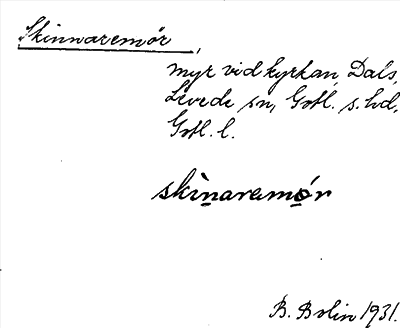 Skinnaremör,
myr vid kyrkan, Dals,
Levede sn, Gotl. s. hd,
Gotl. l.
skìnaramór
B. Bolin 1931.